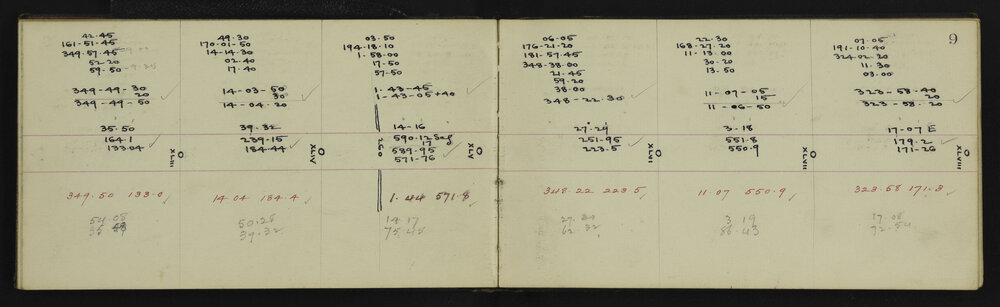 42.45
161-51-45
349-57-45
52-20
59.50
349-49-30
20
349-49-50
35.50
164.1
133.04
XLIII
349.50 133.0
54.08
49.30
170-01-50
14-14-30
02.40
17.40
14-03-50
30
14-04.20
39.32
239.15
184.44
XLIV
14.04 184.4
50.28
39.32
03.50
194-18.10
1-58-00
17-50
57-50
1.43-45
1-43-05+40
14-16
590.12 Sag
17
589.95
571-76
XLV
1.44 571.8
14.17
75.45
06.05
176-21-20
181-57-45
348-38-00
21-45
59.20
38.00
348-22.30
27.29
251.95
223.5
XLVI
348.22 223.5
22.30
168-27.20
11-13.00
30.20
13.50
11-07-05
15
11-06-50
3-18
551.8
550.9
XLVII
11.07 550.9
3 19
86.43
9
07.05
191-10-40
324-02.20
11.30
03.00
323-58-40
20
323-58.20
17-07 E
179.2
171-26
XLVIII
323.58 171.3
17.08
72.54